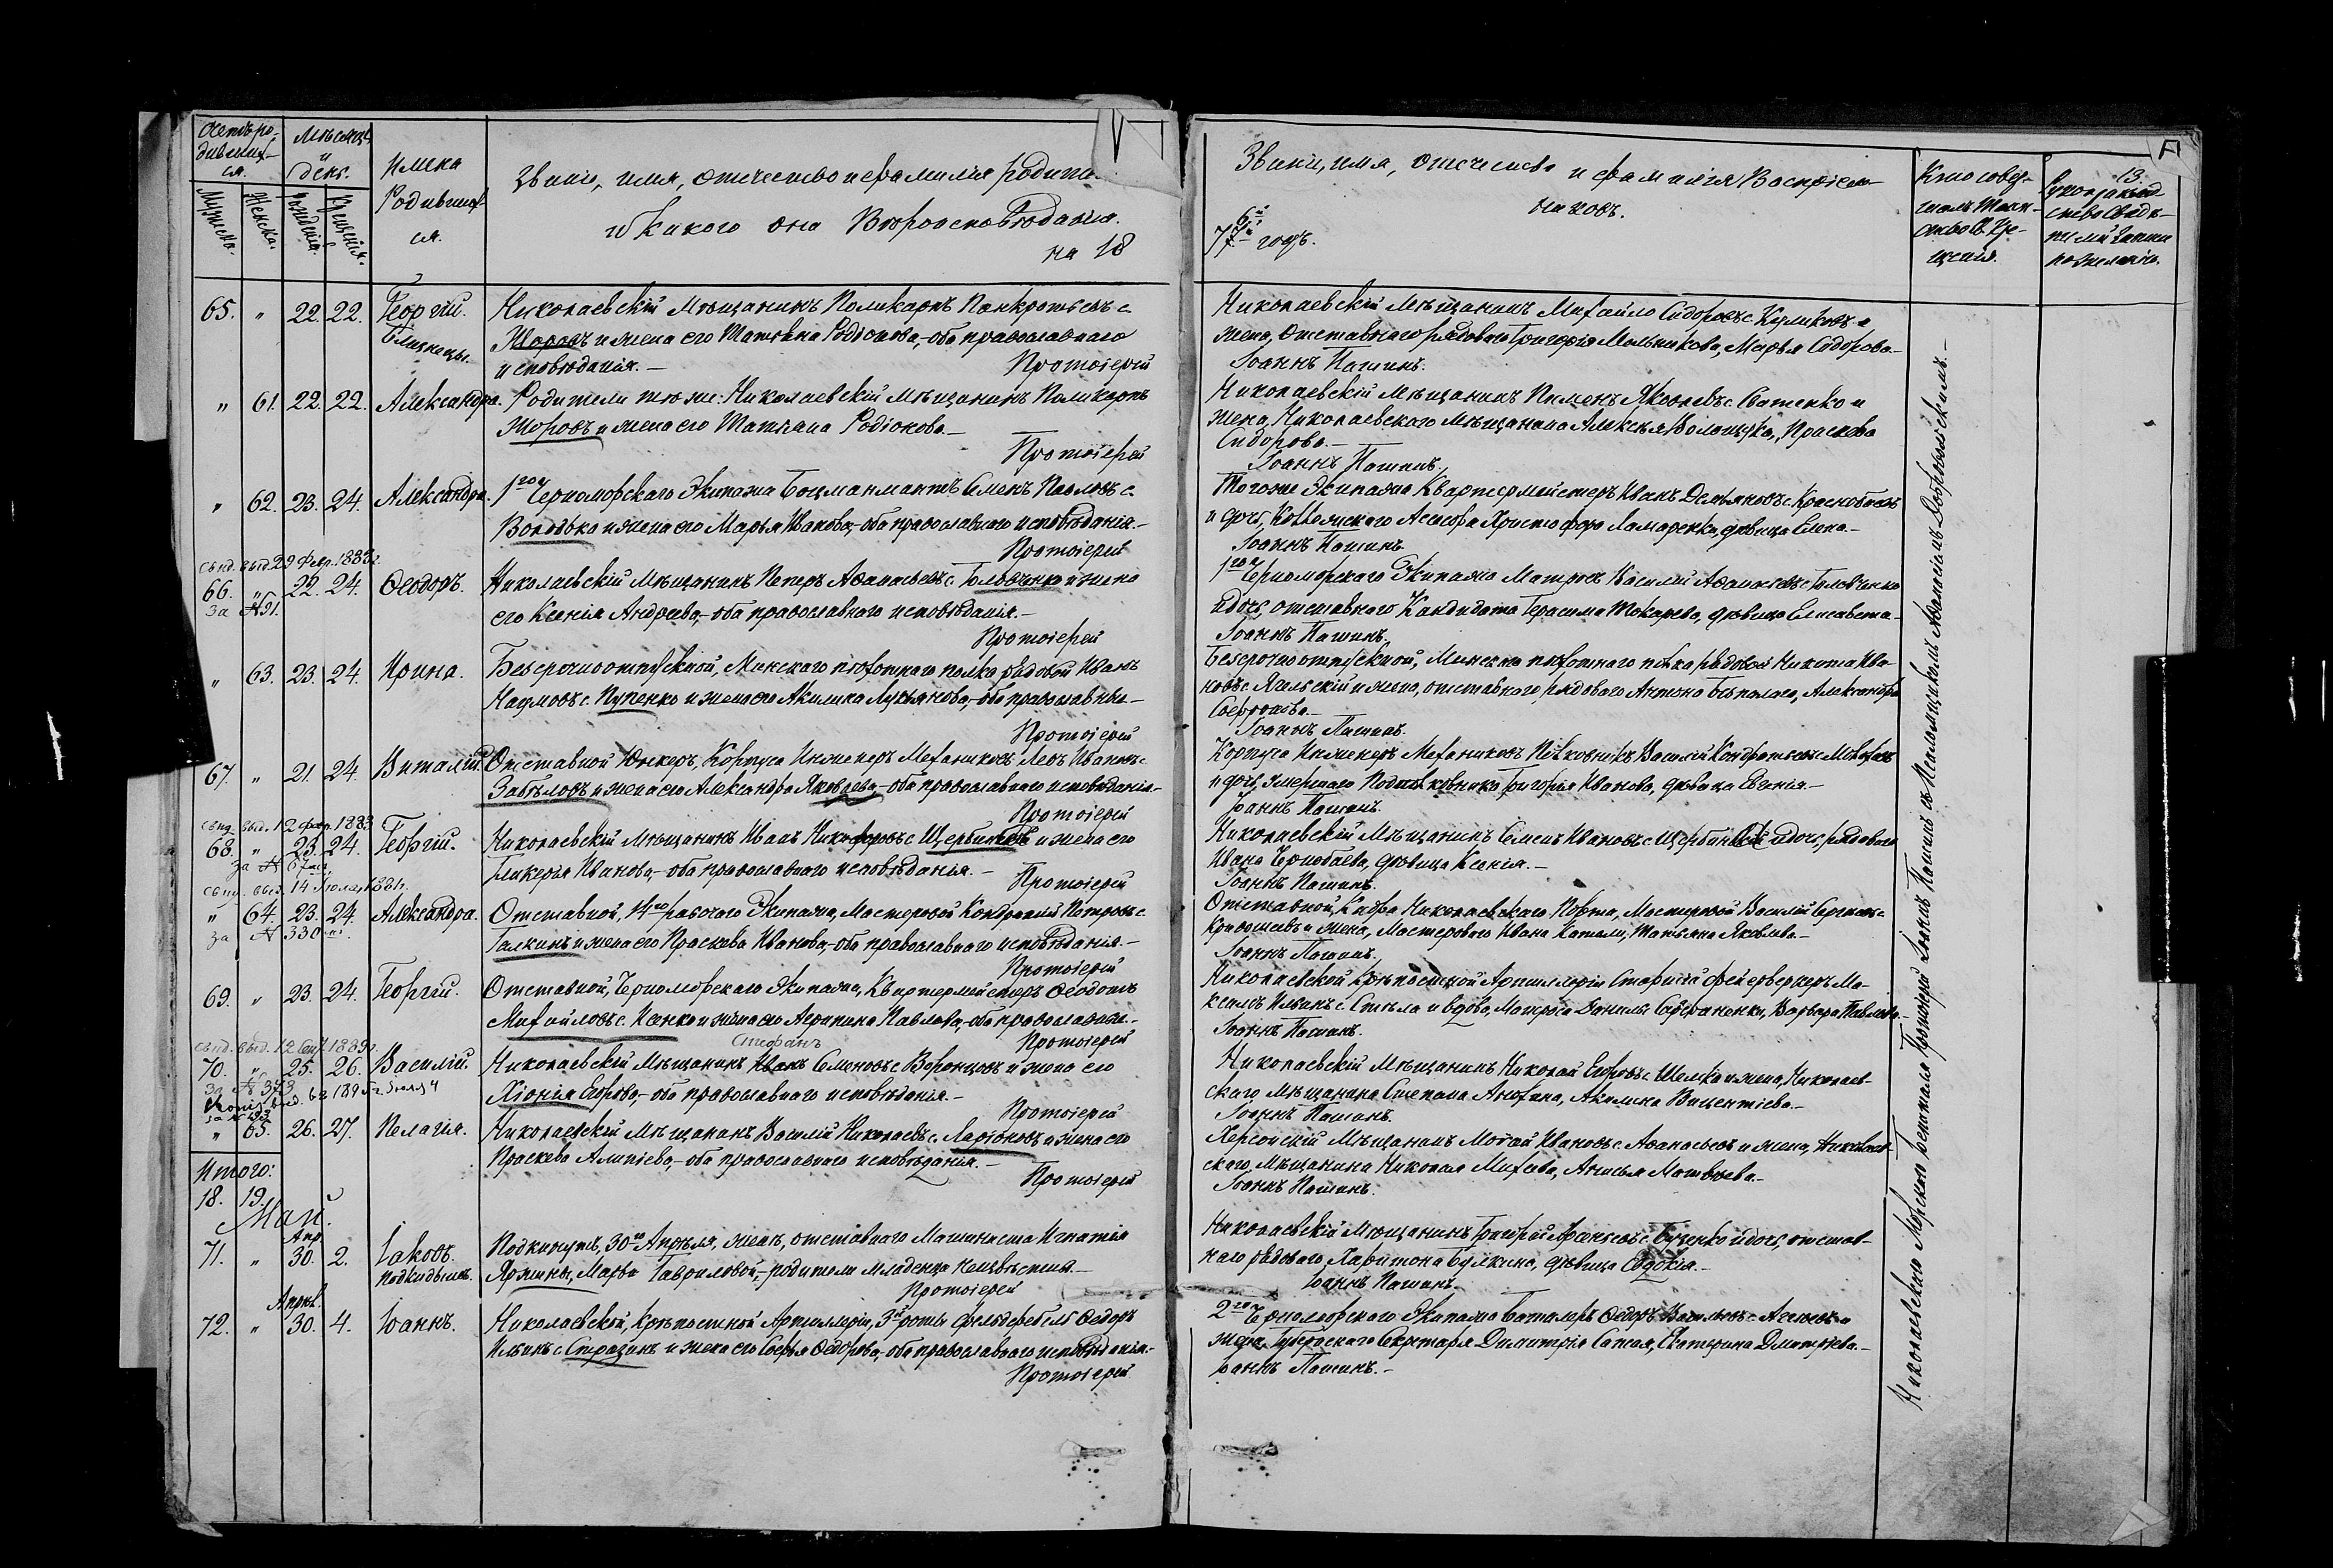 Счетъ ро-
дивших-
ся.
Мѣсяцъ
и
день.
Имена
Родивших-
ся.
Мужска.
Женска.
Рожденія.
Крещенія.
Званіе, имя, отчество и фамилія родите
и какого они Вѣроисповѣданія.
на 18
65. " 22. 22. Георгій. Близнецы.
Николаевскій Мѣщанинъ Поликарпъ Панкратьевъ с.
Жоровъ и жена его Татьяна Родіонова, - оба православнаго
исповѣданія. — Протоіерей
" 61. 22. 22. Александра.
Родители тѣ же: Николаевскій мѣщанинъ Поликарпъ
Жоровъ и жена его Татьяна Родіонова. —
Протоіерей
" 62. 23. 24. Александра.
1го Черноморскаго Экипажа Боцманматъ Семенъ Павловъ с.
и жена его Марья Иванова, - оба православнаго исповѣданія. —
Протоіерей
Свид. выд. 29 Февр. 1883 г.
66. " 22. 24. Ѳеодоръ.
за № 91.
Николаевскій Мѣщанинъ Петръ Аѳанасьевъ с. Головченко и жена
его Ксенія Андреева, - оба православнаго исповѣданія. —
Протоіерей
" 63. 23. 24. Ирина.
Безсрочноотпускной, Минскаго пѣхотнаго полка рядовой Иванъ
Наумовъ с. Пупенко и жена его Акилина Лукьянова, - оба православные —
Протоіерей
67. " 21. 24. Виталій.
Отставной Юнкеръ, Корпуса Инженеръ Механиковъ Левъ Ивановъ с.
Забѣловъ и жена его Александра Яковлева, - оба православнаго исповѣданія. —
Протоіерей
Свид. выд. 12 Февр. 1883
68. " 23. 24. Георгій.
за № 67
Николаевскій мѣщанинъ Иванъ Никифоровъ с. Щербининъ и жена его
Гликерья Иванова, - оба православнаго исповѣданія. —
Протоіерей
Свид. выд. 14 Іюля 1881 г.
" 64. 23. 24. Александра.
за № 330
Отставной, 14го рабочаго Экипажа, Мастеровой Кондратій Петровъ с.
Галкинъ и жена его Праскева Иванова, - оба православнаго исповѣданія. —
Протоіерей
69. " 23. 24. Георгій.
Отставной, Черноморскаго Экипажа, Квартермейстеръ Ѳеодотъ
Михайловъ с. и жена его Агрипина Павлова, - оба православные. —
Протоіерей
Свид. выд. 12 Сент. 1889 г.
70. " 25. 26. Василій.
за № 373
Стефанъ
Николаевскій Мѣщанинъ Иванъ Семеновъ с. Воронцовъ и жена его
Хіонія Егорова, - оба православнаго исповѣданія. —
Протоіерей
" 65. 26. 27. Пелагія.
Николаевскій Мѣщанинъ Василій Николаевъ с. Ларіоновъ и жена его
Праскева Алипіева, - оба православнаго исповѣданія. —
Протоіерей
Итого:
18. 19.
Май.
Апр
71. " 30. 2. Іаковъ. подкидышъ.
Подкинутъ, 30го Апрѣля, женѣ, отставнаго Машиниста Игнатія
Марьѣ Гавриловой, - родители младенца неизвѣстны. —
Протоіерей
Апрѣл.
72. " 30. 4. Іоаннъ.
Николаевской, Крѣпостной Артиллеріи, 3й роты фельдфебель Ѳедоръ
Ильинъ с. Стразинъ и жена его Софья Ѳедорова, - оба православнаго исповѣданія. —
Протоіерей
Званіе, имя, отчество и фамилія Воспріем-
никовъ.
7 6й годъ.
Кто совер-
шалъ Таин-
ство Св. Кре-
щенія.
13.
Рукоприклад-
ство Свидѣ-
телей записи
по желанію.
Николаевскій мѣщанинъ Михайло Сидоровъ с. Куликовъ и
жена, отставнаго рядоваго Григорія Мельникова, Марья Сидорова —
Іоаннъ Пашинъ.
Николаевскій мѣщанинъ Пименъ Яковлевъ с. Сватенко и
жена, Николаевскаго Мѣщанина Алексѣя Волощука, Праскева
Сидорова. —
Іоаннъ Пашинъ.
Тогоже Экипажа Квартермейстеръ Иванъ Демьяновъ с.
и дочь, Коллежскаго Асессора Христофора Ламаренки, дѣвица Елена. —
Іоаннъ Пашинъ
1го Черноморскаго Экипажа Матросъ Василій Аѳанасьевъ с. Головченко
и дочь отставнаго Кандидата Герасима Токарева, дѣвица Елисавета. —
Іоаннъ Пашинъ.
Безсрочноотпускной, Минскаго пѣхотнаго полка рядовой Никита Ива-
новъ с. Ягельскій и жена, отставнаго рядоваго Антона Бѣлаго, Александра
Софронова. —
Іоаннъ Пашинъ.
Корпуса Инженеръ Механиковъ Полковникъ Василій Кондратьевъ с.
и дочь, умершаго Подполковника Григорія Иванова, дѣвица Евгенія. —
Іоаннъ Пашинъ.
Николаевскій Мѣщанинъ Семенъ Ивановъ с. Щербининъ и дочь, рядоваго
Ивана Чернобаева, дѣвица Ксенія. —
Іоаннъ Пашинъ.
Отставной, Николаевскаго Порта, Мастеровой Василій Сергѣевъ с.
Кривошеевъ и жена, Мастероваго Ивана Татьяна Яковлева —
Іоаннъ Пашинъ.
Николаевской Крѣпостной Артиллеріи Старшій фейерверкеръ Ма-
ксимъ Ильинъ с. и вдова, Матроса Даніила Варвара Павлова. —
Іоаннъ Пашинъ.
Николаевскій Мѣщанинъ Николай Егоровъ с. и жена, Николаев-
скаго Мѣщанина Степана Анохина, Акилина Викентіева. —
Іоаннъ Пашинъ.
Херсонскій Мѣщанинъ Ивановъ с. Аѳанасьевъ и жена, Николаев-
скаго, Мѣщанина Николая Михеева, Анисья Матвѣева. —
Іоаннъ Пашинъ.
Николаевскій Мѣщанинъ Григорій с. Буценко и дочь, отстав-
наго рядоваго Харитона Булкина, дѣвица Евдокія. —
Іоаннъ Пашинъ.
2го Черноморскаго Экипажа Баталеръ Ѳедоръ Васильевъ с. и
жена, Губернскаго Секретаря Димитрія Екатерина Дмитріева. —
Іоаннъ Пашинъ. —
Николаевскаго Морскаго Протоіерей Іоаннъ Пашинъ съ Псаломщикомъ Аѳанасіемъ Добровольскимъ. —